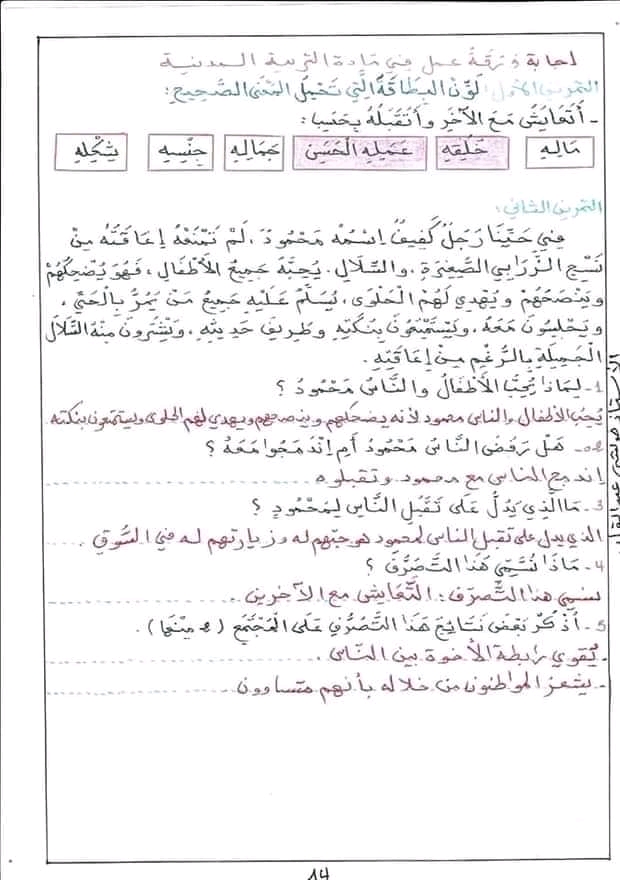 إجابة ورقة عمل في مادة التربية المدنية
التمرين الأول: لَوِّنْ البِطَاقَةَ الَّتِي تَحْمِلُ المَعْنَى الصَّحِيحَ:
- أَتَعَايَشُ مَعَ الآخَرِ وأَتَقَبَّلُهُ بِحَسَبِ:
مَالِهِ خُلُقِهِ عَمَلِهِ الْحَسَنِ جَمَالِهِ جِنْسِهِ شَكْلِهِ
التمرين الثاني:
فِي حَيِّنَا رَجُلٌ كَفِيفٌ اِسْمُهُ مَحْمُودٌ، لَمْ تَمْنَعْهُ إِعَاقَتُهُ مِنْ
نَسْجِ الزَّرَابِي الصَّغِيرَةِ، والسِّلَالِ. يُحِبُّهُ جَمِيعُ الأَطْفَالِ، فَهُوَ يُضْحِكُهُمْ
ويَنْصَحُهُمْ ويُهْدِي لَهُمُ الْحَلْوَى، يُسَلِّمُ عَلَيْهِ جَمِيعُ مَنْ يَمُرُّ بِالْحَيِّ،
ويَجْلِسُونَ مَعَهُ، ويَسْتَمْتِعُونَ بِنُكَتِهِ وطَرِيفِ حَدِيثِهِ، ويَشْتَرُونَ مِنْهُ السِّلَالَ
الْجَمِيلَةَ بِالرُّغْمِ مِنْ إِعَاقَتِهِ.
1- لِمَاذَا يُحِبُّ الأَطْفَالُ والنَّاسُ مَحْمُودَ ؟
يُحِبُّ الأطفال والناس محمود لأنه يضحكهم وينصحهم ويهدي لهم الحلوى ويستمتعون بنكته
2- هَلْ رَفَضَ النَّاسُ مَحْمُودُ أَمِ اِنْدَمَجُوا مَعَهُ ؟
اندمج الناس مع محمود وتقبلوه
3- مَا الَّذِي يَدُلُّ عَلَى تَقَبُّلِ النَّاسِ لِمَحْمُودٍ ؟
الذي يدل على تقبل الناس لمحمود هو حبّهم له وزيارتهم له في السُّوق.
4- مَاذَا نُسَمِّي هَذَا التَّصَرُّفَ ؟
نسمي هذا التَّصرّف: التَّعايش مع الآخرين.
5- أُذْكُرْ بَعْضَ نَتَائِجَ هَذَا التَّصَرُّفِ عَلَى الْمُجْتَمَعِ (2 مِنْهَا).
- يُقوي رابطة الأخوة بين النّاس.
- يشعر المواطنون من خلاله بأنهم متساوون
14